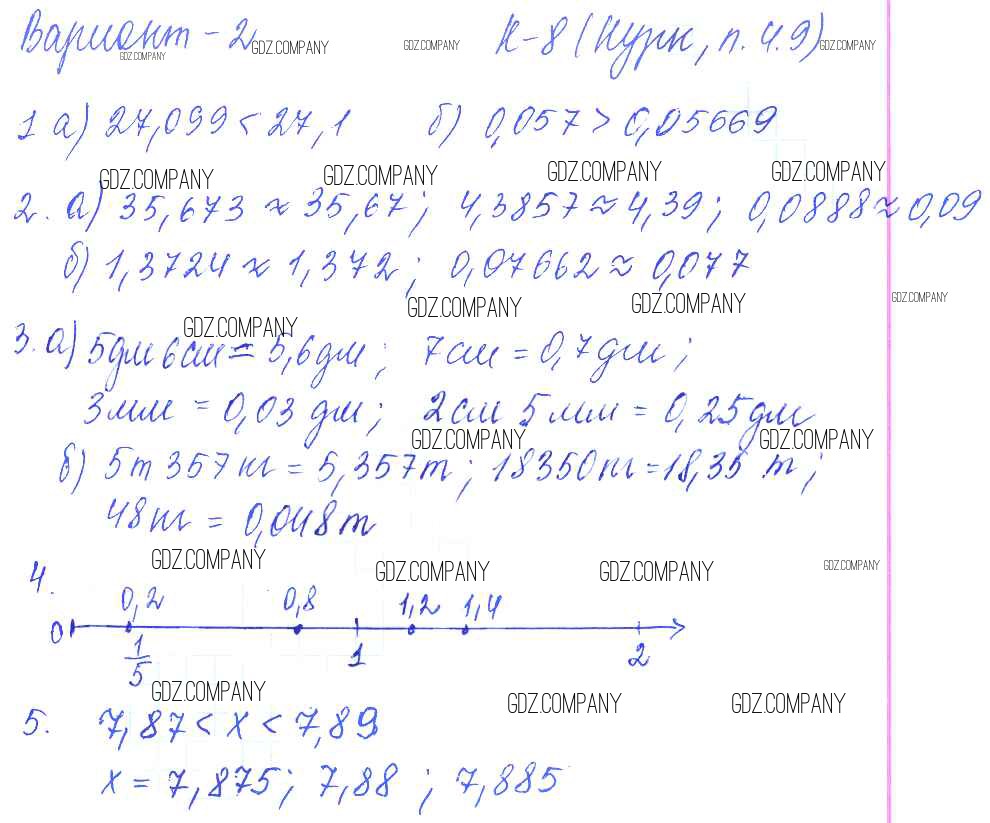 Вариант - 2 К-8 (Нурк, п. 4.9)
GDZ.COMPANY GDZ.COMPANY GDZ.COMPANY GDZ.COMPANY
1 а) 27,099 < 27,1 б) 0,057 > 0,05669
GDZ.COMPANY GDZ.COMPANY GDZ.COMPANY GDZ.COMPANY
2. а) 35,673 ≈ 35,67; 4,3857 ≈ 4,39; 0,0888 ≈ 0,09
б) 1,3724 ≈ 1,372; 0,07662 ≈ 0,077
GDZ.COMPANY GDZ.COMPANY GDZ.COMPANY GDZ.COMPANY
3. а) 5дм 6см = 5,6дм; 7см = 0,7дм;
3мм = 0,03 дм; 2см 5мм = 0,25дм
GDZ.COMPANY GDZ.COMPANY
б) 5т 357кг = 5,357т; 18350кг = 18,35 т;
48кг = 0,048т
GDZ.COMPANY GDZ.COMPANY GDZ.COMPANY GDZ.COMPANY
4.
0,2 0,8 1,2 1,4
0 1/5 1 2
GDZ.COMPANY GDZ.COMPANY GDZ.COMPANY
5. 7,87 < x < 7,89
x = 7,875; 7,88 ; 7,885